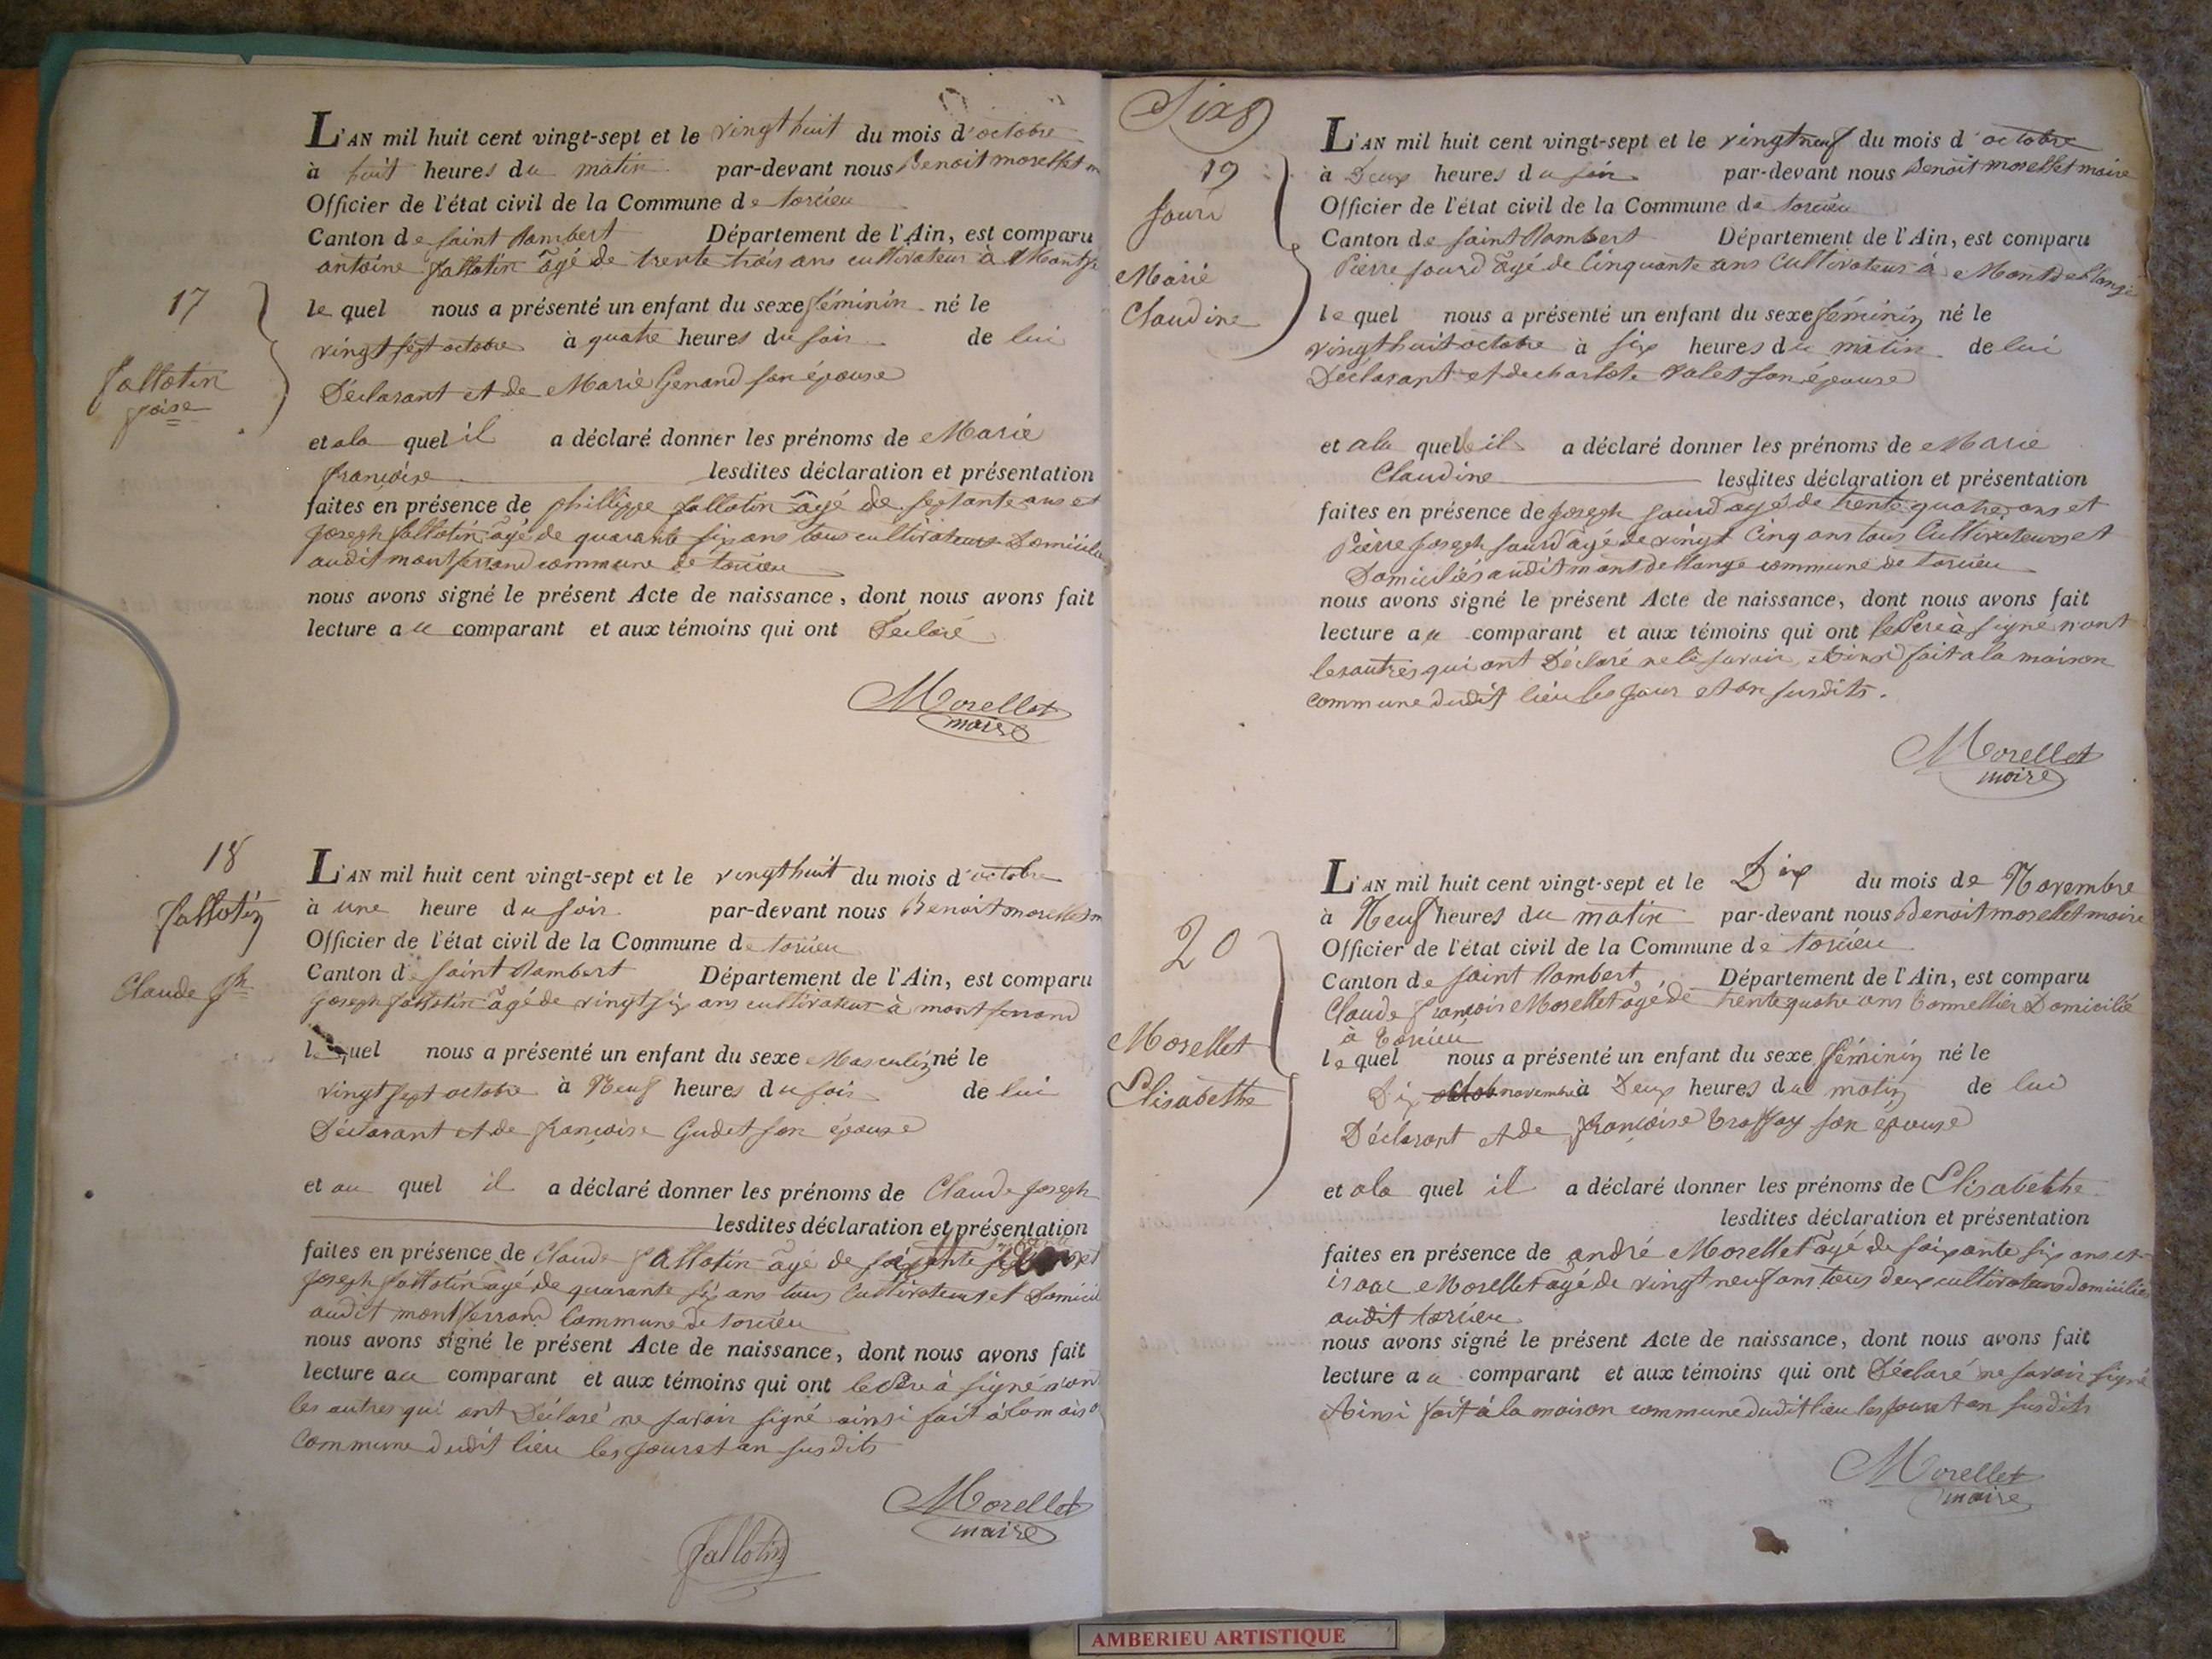 L'AN mil huit cent vingt-sept et le vingt huit du mois d'octobre
à huit heures du matin par-devant nous Benoit morellet m
Officier de l'état civil de la Commune de torcieu
Canton de saint Rambert Département de l'Ain, est comparu
antoine fallotin âgé de trente trois ans cultivateur à
17
le quel nous a présenté un enfant du sexe féminin né le
vingt sept octobre à quatre heures du soir de lui
fallotin
Déclarant et de Marie Genand son épouse
et a la quel il a déclaré donner les prénoms de Marie
françoise lesdites déclaration et présentation
faites en présence de phillippe fallotin âgé de septante ans et
joseph fallotin âgé de quarante six ans tous cultivateurs
audit montferrand commune de torcieu
nous avons signé le présent Acte de naissance, dont nous avons fait
lecture au comparant et aux témoins qui ont Déclaré
Morellet
maire
18
fallotin
Claude jh
L'AN mil huit cent vingt-sept et le vingt huit du mois d'octobre
à une heure du soir par-devant nous Benoit morellet m
Officier de l'état civil de la Commune de torcieu
Canton de saint Rambert Département de l'Ain, est comparu
joseph fallotin âgé de vingt six ans cultivateur à montferrand
le quel nous a présenté un enfant du sexe Masculin né le
vingt sept octobre à Neuf heures du soir de lui
Déclarant et de françoise Gudet son épouse
et au quel il a déclaré donner les prénoms de Claude joseph
lesdites déclaration et présentation
faites en présence de Claude fallotin âgé de
joseph fallotin âgé de quarante six ans tous cultivateurs et
audit montferrand Commune de torcieu
nous avons signé le présent Acte de naissance, dont nous avons fait
lecture au comparant et aux témoins qui ont le Père à signé
les autres qui ont Déclaré ne savoir signé ainsi fait à la
Commune dudit lieu les jour et an susdits
Morellet
maire
fallotin
19
Marie
Claudine
L'AN mil huit cent vingt-sept et le vingt neuf du mois d'octobre
à Deux heures du soir par-devant nous Benoit morellet maire
Officier de l'état civil de la Commune de torcieu
Canton de saint Rambert Département de l'Ain, est comparu
Pierre jourd âgé de Cinquante ans Cultivateur à
le quel nous a présenté un enfant du sexe féminin né le
vingt huit octobre à six heures du matin de lui
Déclarant et de charlote Valet son épouse
et a la quelle il a déclaré donner les prénoms de Marie
Claudine lesdites déclaration et présentation
faites en présence de joseph jourd âgé de trente quatre ans et
Pierre joseph jourd âgé de vingt Cinq ans tous Cultivateurs et
Domiciliés audit commune de torcieu
nous avons signé le présent Acte de naissance, dont nous avons fait
lecture au comparant et aux témoins qui ont le Père à signé
les autres qui ont Déclaré ne le savoir, Ainsi fait a la maison
commune dudit lieu les jour et an susdits.
Morellet
maire
20
Morellet
Elisabethe
L'AN mil huit cent vingt-sept et le Dix du mois de Novembre
à Neuf heures du matin par-devant nous Benoit morellet maire
Officier de l'état civil de la Commune de torcieu
Canton de saint Rambert Département de l'Ain, est comparu
Claude françois Morellet âgé de trente quatre ans Tonnellier Domicilié
à Torcieu
le quel nous a présenté un enfant du sexe féminin né le
Dix novembre à Deux heures du matin de lui
Déclarant et de françoise son épouse
et a la quel il a déclaré donner les prénoms de Elisabethe
lesdites déclaration et présentation
faites en présence de andré Morellet âgé de soixante six ans et
isaac Morellet âgé de vingt neuf ans tous deux cultivateurs domiciliés
audit torcieu
nous avons signé le présent Acte de naissance, dont nous avons fait
lecture au comparant et aux témoins qui ont Déclaré ne savoir signé
Ainsi fait à la maison commune dudit lieu les jour et an susdits
Morellet
maire
AMBERIEU ARTISTIQUE